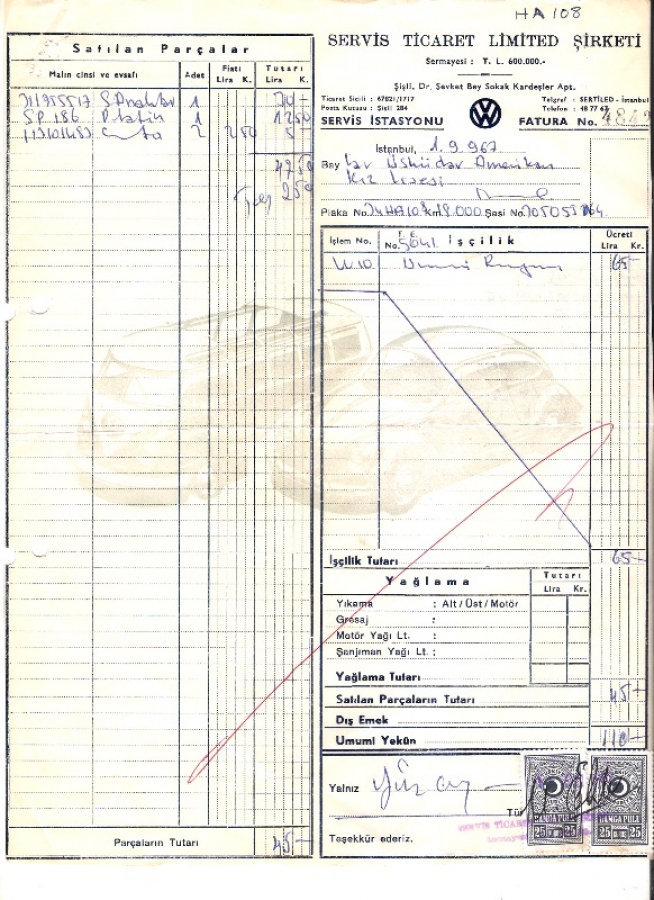 HA 108
SERVİS TİCARET LİMİTED ŞİRKETİ
Sermayesi : T. L. 600.000.-
Şişli, Dr. Şevket Bey Sokak Kardeşler Apt.
Ticaret Sicili : 67821/1717
Telgraf : SERTİLED - İstanbul
Posta Kutusu : Şişli 284
Telefon : 48 77 63
SERVİS İSTASYONU
VW
FATURA No.
İstanbul, 1.9.967
Bay Üsküdar Amerikan
Kız Lisesi
Plaka No. 34HA108 Km. Şasi No.
Satılan Parçalar
Malın cinsi ve evsafı
Adet
Fiatı
Lira K.
Tutarı
Lira K.
1
20 -
SP 186 Platin 1 12 50
2 2 50 5 -
47 50
2 50
Parçaların Tutarı 45 -
İşlem No.
F. E.
No. 5641
İşçilik
Ücreti
Lira Kr.
65 -
İşçilik Tutarı 65 -
Yağlama
Tutarı
Lira Kr.
Yıkama : Alt / Üst / Motör
Gresaj :
Motör Yağı Lt. :
Şanjıman Yağı Lt. :
Yağlama Tutarı
Satılan Parçaların Tutarı 45 -
Dış Emek
Umumi Yekûn 110 -
Yalnız Yüz on
Teşekkür ederiz.
SERVİS TİCARET
DAMGA PULU
25 25
DAMGA PULU
25 25